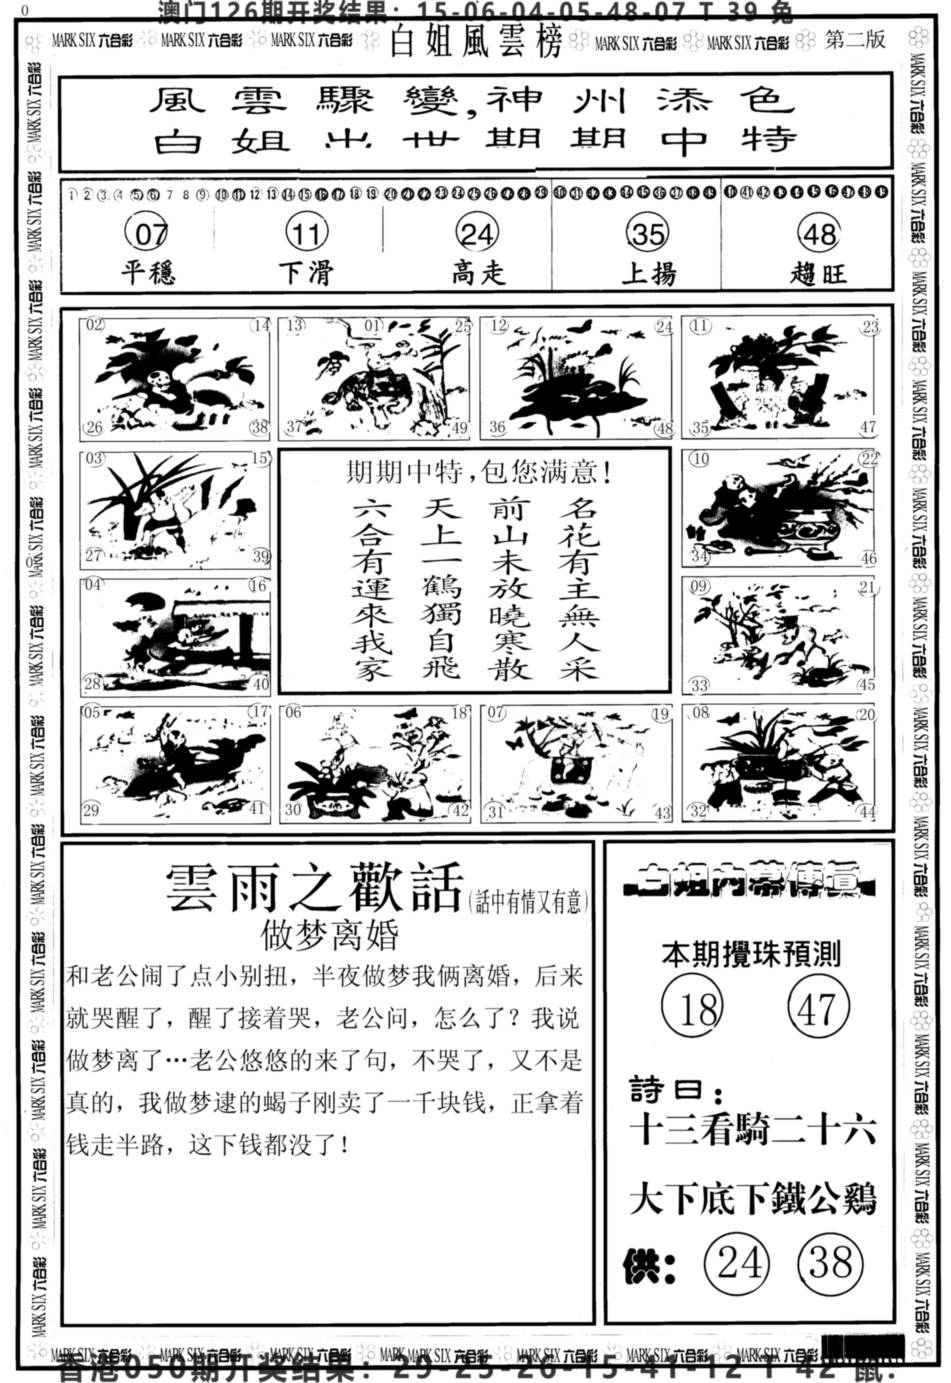 0
澳门126期开奖结果：15-06-04-05-48-07 T 39 兔
MARK SIX 六合彩 MARK SIX 六合彩 MARK SIX 六合彩 白姐風雲榜 MARK SIX 六合彩 MARK SIX 六合彩 第二版
風雲驟變,神州添色
白姐出世期期中特
1 2 3 4 5 6 7 8 9 10 11 12 13 14 15 16 17 18 19 20 21 22 23 24 25 26 27 28 29 30 31 32 33 34 35 36 37 38 39 40 41 42 43 44 45 46 47 48 49
07 11 24 35 48
平穩 下滑 高走 上揚 趨旺
02 14 13 01 25 12 24 11 23
26 38 37 49 36 48 35 47
03 15
27 39
04 16
28 40
期期中特,包您满意!
名花有主無人采
前山未放曉寒散
天上一鶴獨自飛
六合有運來我家
10 22
34 46
09 21
33 45
05 17 06 18 07 19 08 20
29 41 30 42 31 43 32 44
雲雨之歡話(話中有情又有意)
做梦离婚
和老公闹了点小别扭，半夜做梦我俩离婚，后来
就哭醒了，醒了接着哭，老公问，怎么了？我说
做梦离了…老公悠悠的来了句，不哭了，又不是
真的，我做梦逮的蝎子刚卖了一千块钱，正拿着
钱走半路，这下钱都没了！
白姐内幕傳真
本期攪珠預測
18 47
詩曰：
十三看騎二十六
大下底下鐵公鷄
供： 24 38
MARK SIX 六合彩 MARK SIX 六合彩 MARK SIX 六合彩 MARK SIX 六合彩 MARK SIX 六合彩 MARK SIX 六合彩 MARK SIX 六合彩
香港050期开奖结果：29-25-26-15-41-12 T 42 鼠.